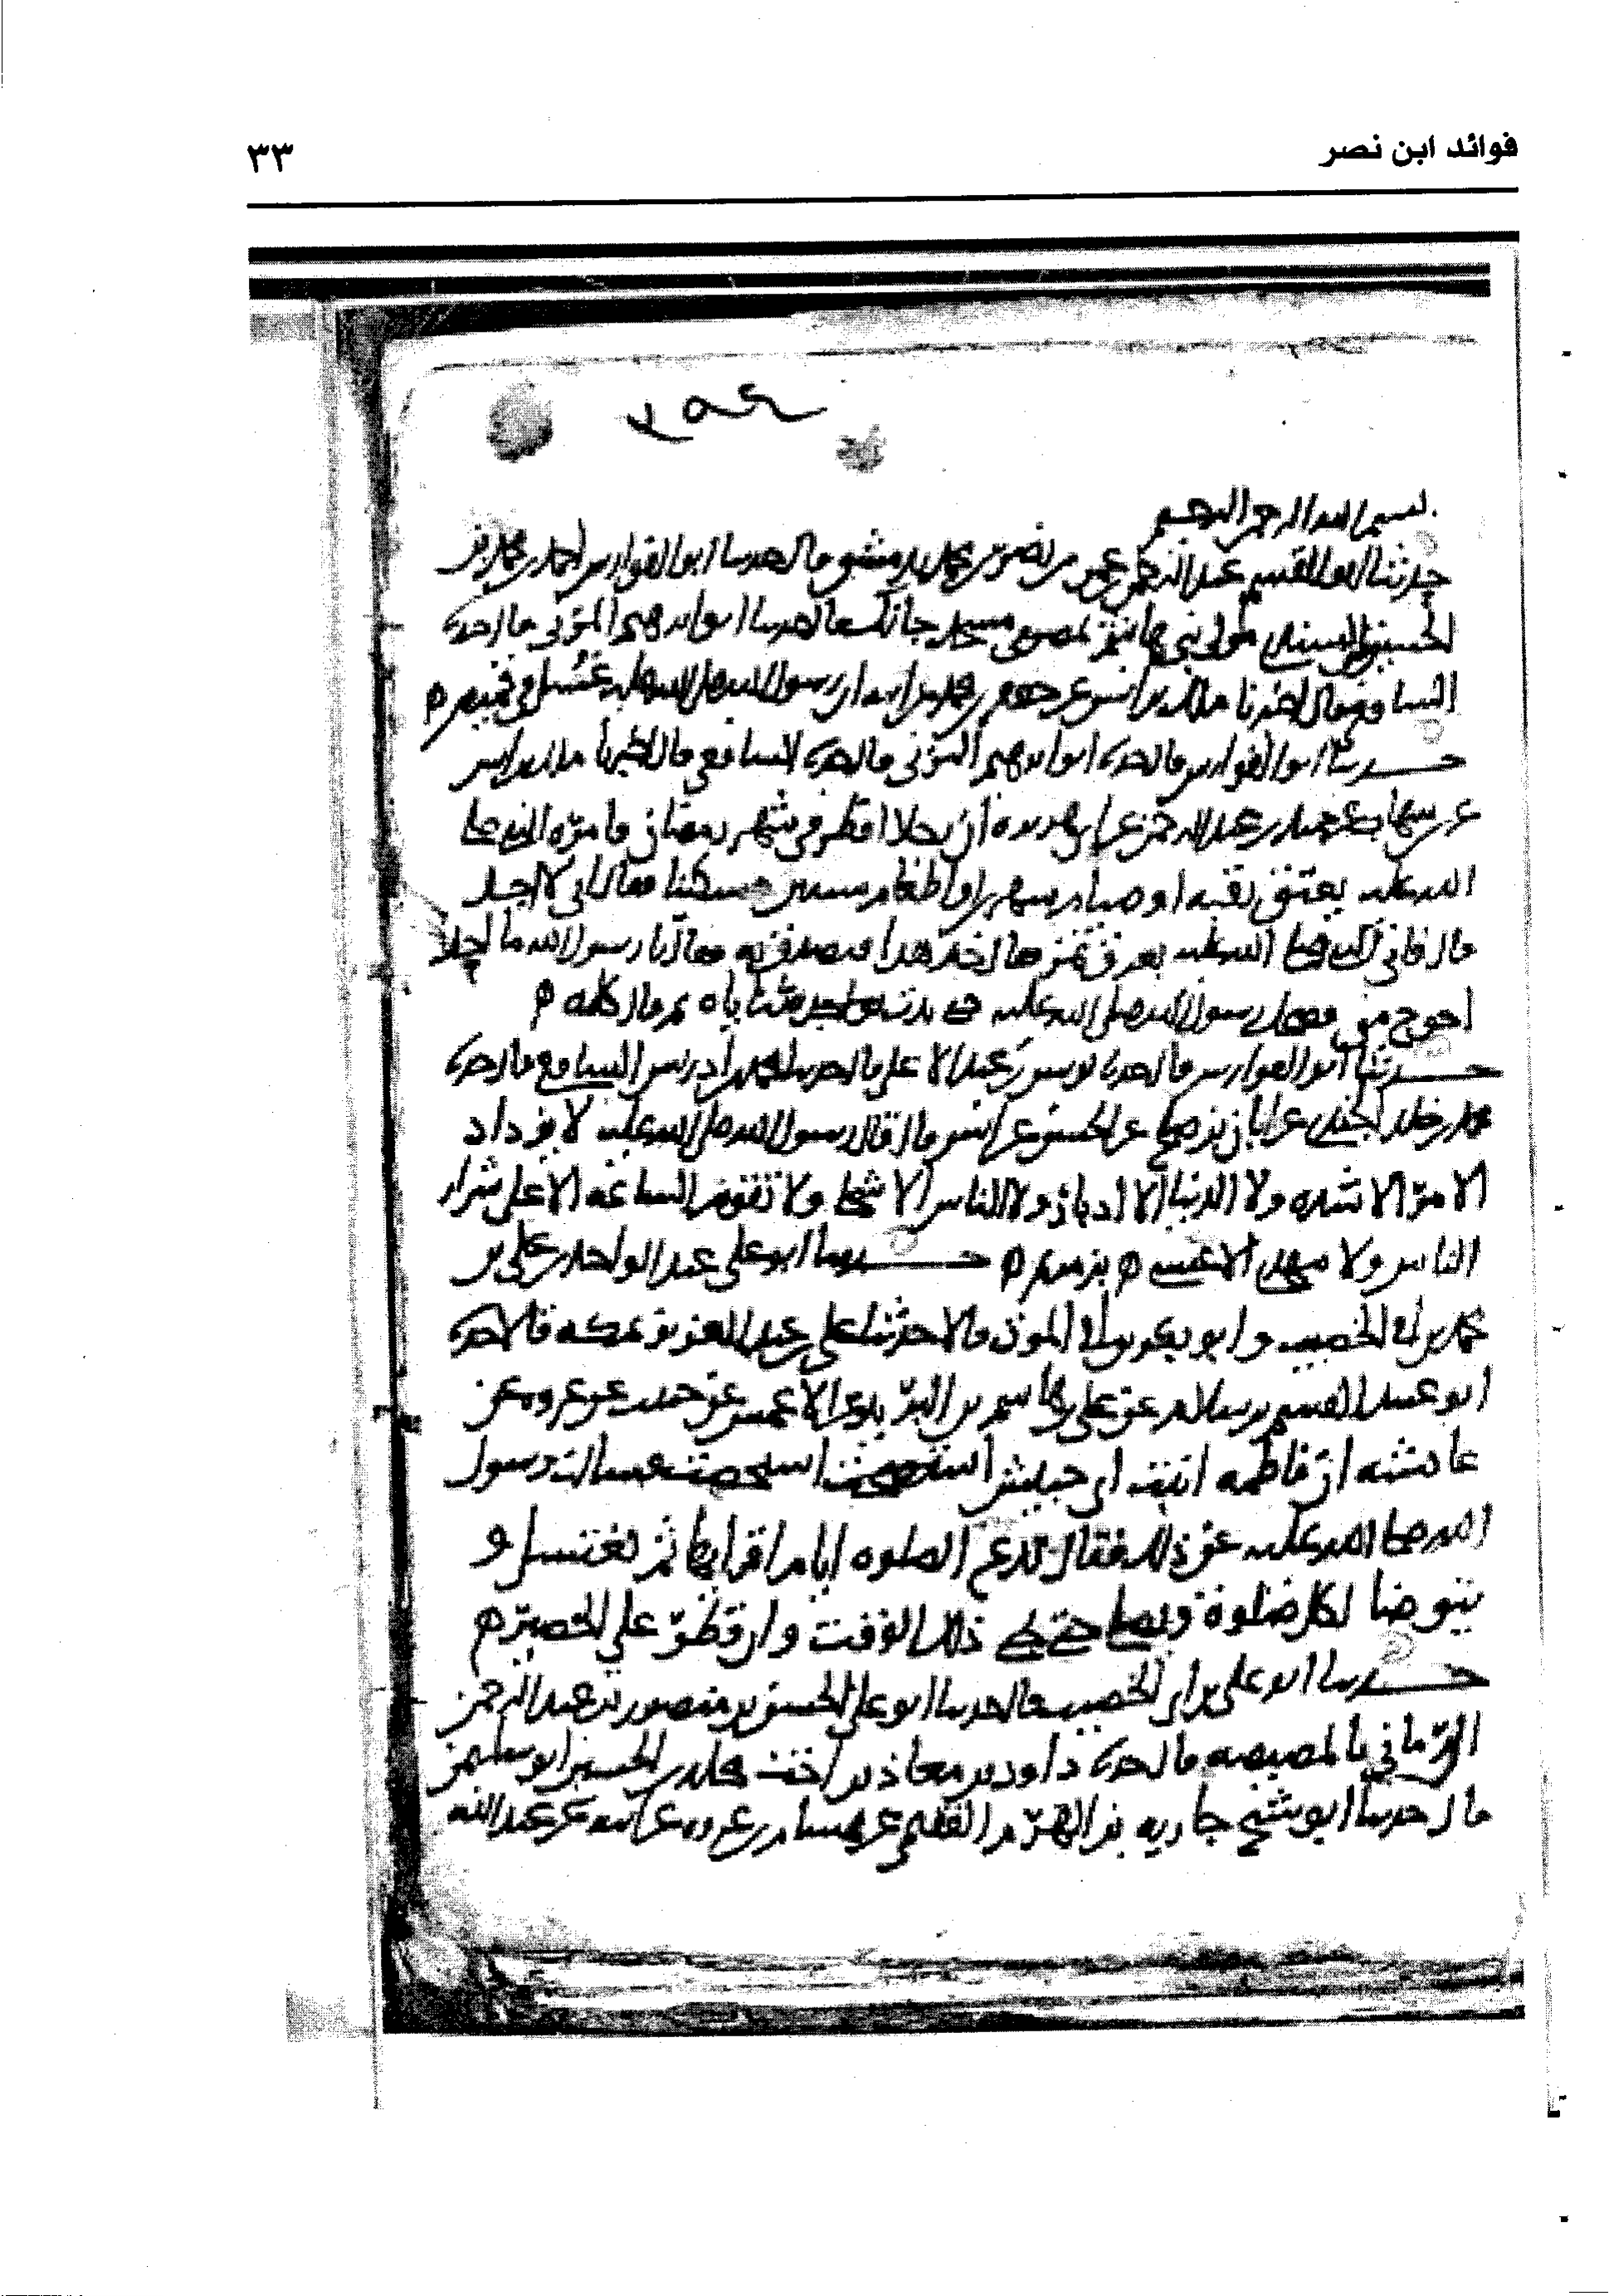 فوائد ابن نصر
٣٣
بسم الله الرحمن الرحيم
حدثنا ابو القسم عبد الرحمن بن عمر بن نصر بن محمد بدمشق قال حدثنا ابو الفوارس احمد بن محمد بن
الحسين السندي مولى بني هاشم بمصر في مسجد قال حدثنا ابو ابرهيم المزني قال حدثنا
الشافعي قال اخبرنا ملك بن انس عن جعفر بن محمد عن ابيه ان رسول الله صلى الله عليه غسل في قميص ه
حدثنا ابو الفوارس قال حدثنا ابو ابرهيم المزني قال حدثنا الشافعي قال اخبرنا ملك بن انس
عن ابن شهاب عن حميد بن عبد الرحمن عن ابي هريره ان رجلا افطر في شهر رمضان فامره النبي صلى
الله عليه بعتق رقبه او صيام شهرين او اطعام ستين مسكينا فقال اني لا اجد
قال فاتي النبي صلى الله عليه بعرق تمر فقال خذ هذا فتصدق به فقال يا رسول الله ما احدا
احوج مني فضحك رسول الله صلى الله عليه حتى بدت ثناياه ثم قال كله ه
حدثنا ابو الفوارس قال حدثنا يونس بن عبد الاعلى قال حدثنا محمد بن ادريس الشافعي قال حدثنا
محمد بن خالد الجندي عن ابان بن صالح عن الحسن عن انس قال قال رسول الله صلى الله عليه لا يزداد
الامر الا شده ولا الدنيا الا ادبار ولا الناس الا شحا ولا تقوم الساعه الا على شرار
الناس ولا مهدي الا عيسى ه بن مريم ه حدثنا ابو علي عبد الواحد بن علي بن
محمد بن ابي الخصيب وابو بكر بن ابي الموت قالا حدثنا علي بن عبد العزيز بمكه قال حدثنا
ابو عبيد القسم بن سلام عن علي بن هاشم بن البريد عن الاعمش عن حبيب عن عروه عن
عائشه ان فاطمه ابنت ابي حبيش استحيضت فسالت رسول
الله صلى الله عليه عن ذلك فقال تدع الصلوه ايام اقرائها ثم تغتسل و
تتوضا لكل صلوة وتصلي حتى يجي ذلك الوقت وان قطر على الحصير ه
حدثنا ابو علي بن ابي الخصيب قال حدثنا ابو علي الحسن بن منصور بن عبد الرحمن
الرماني بالمصيصه قال حدثنا داود بن معاذ بن اخت مخلد بن الحسين ابو سليمن
قال حدثنا ابو شيخ جاريه بن الهرم الفقيمي عن هشام بن عروه عن ابيه عن عبد الله